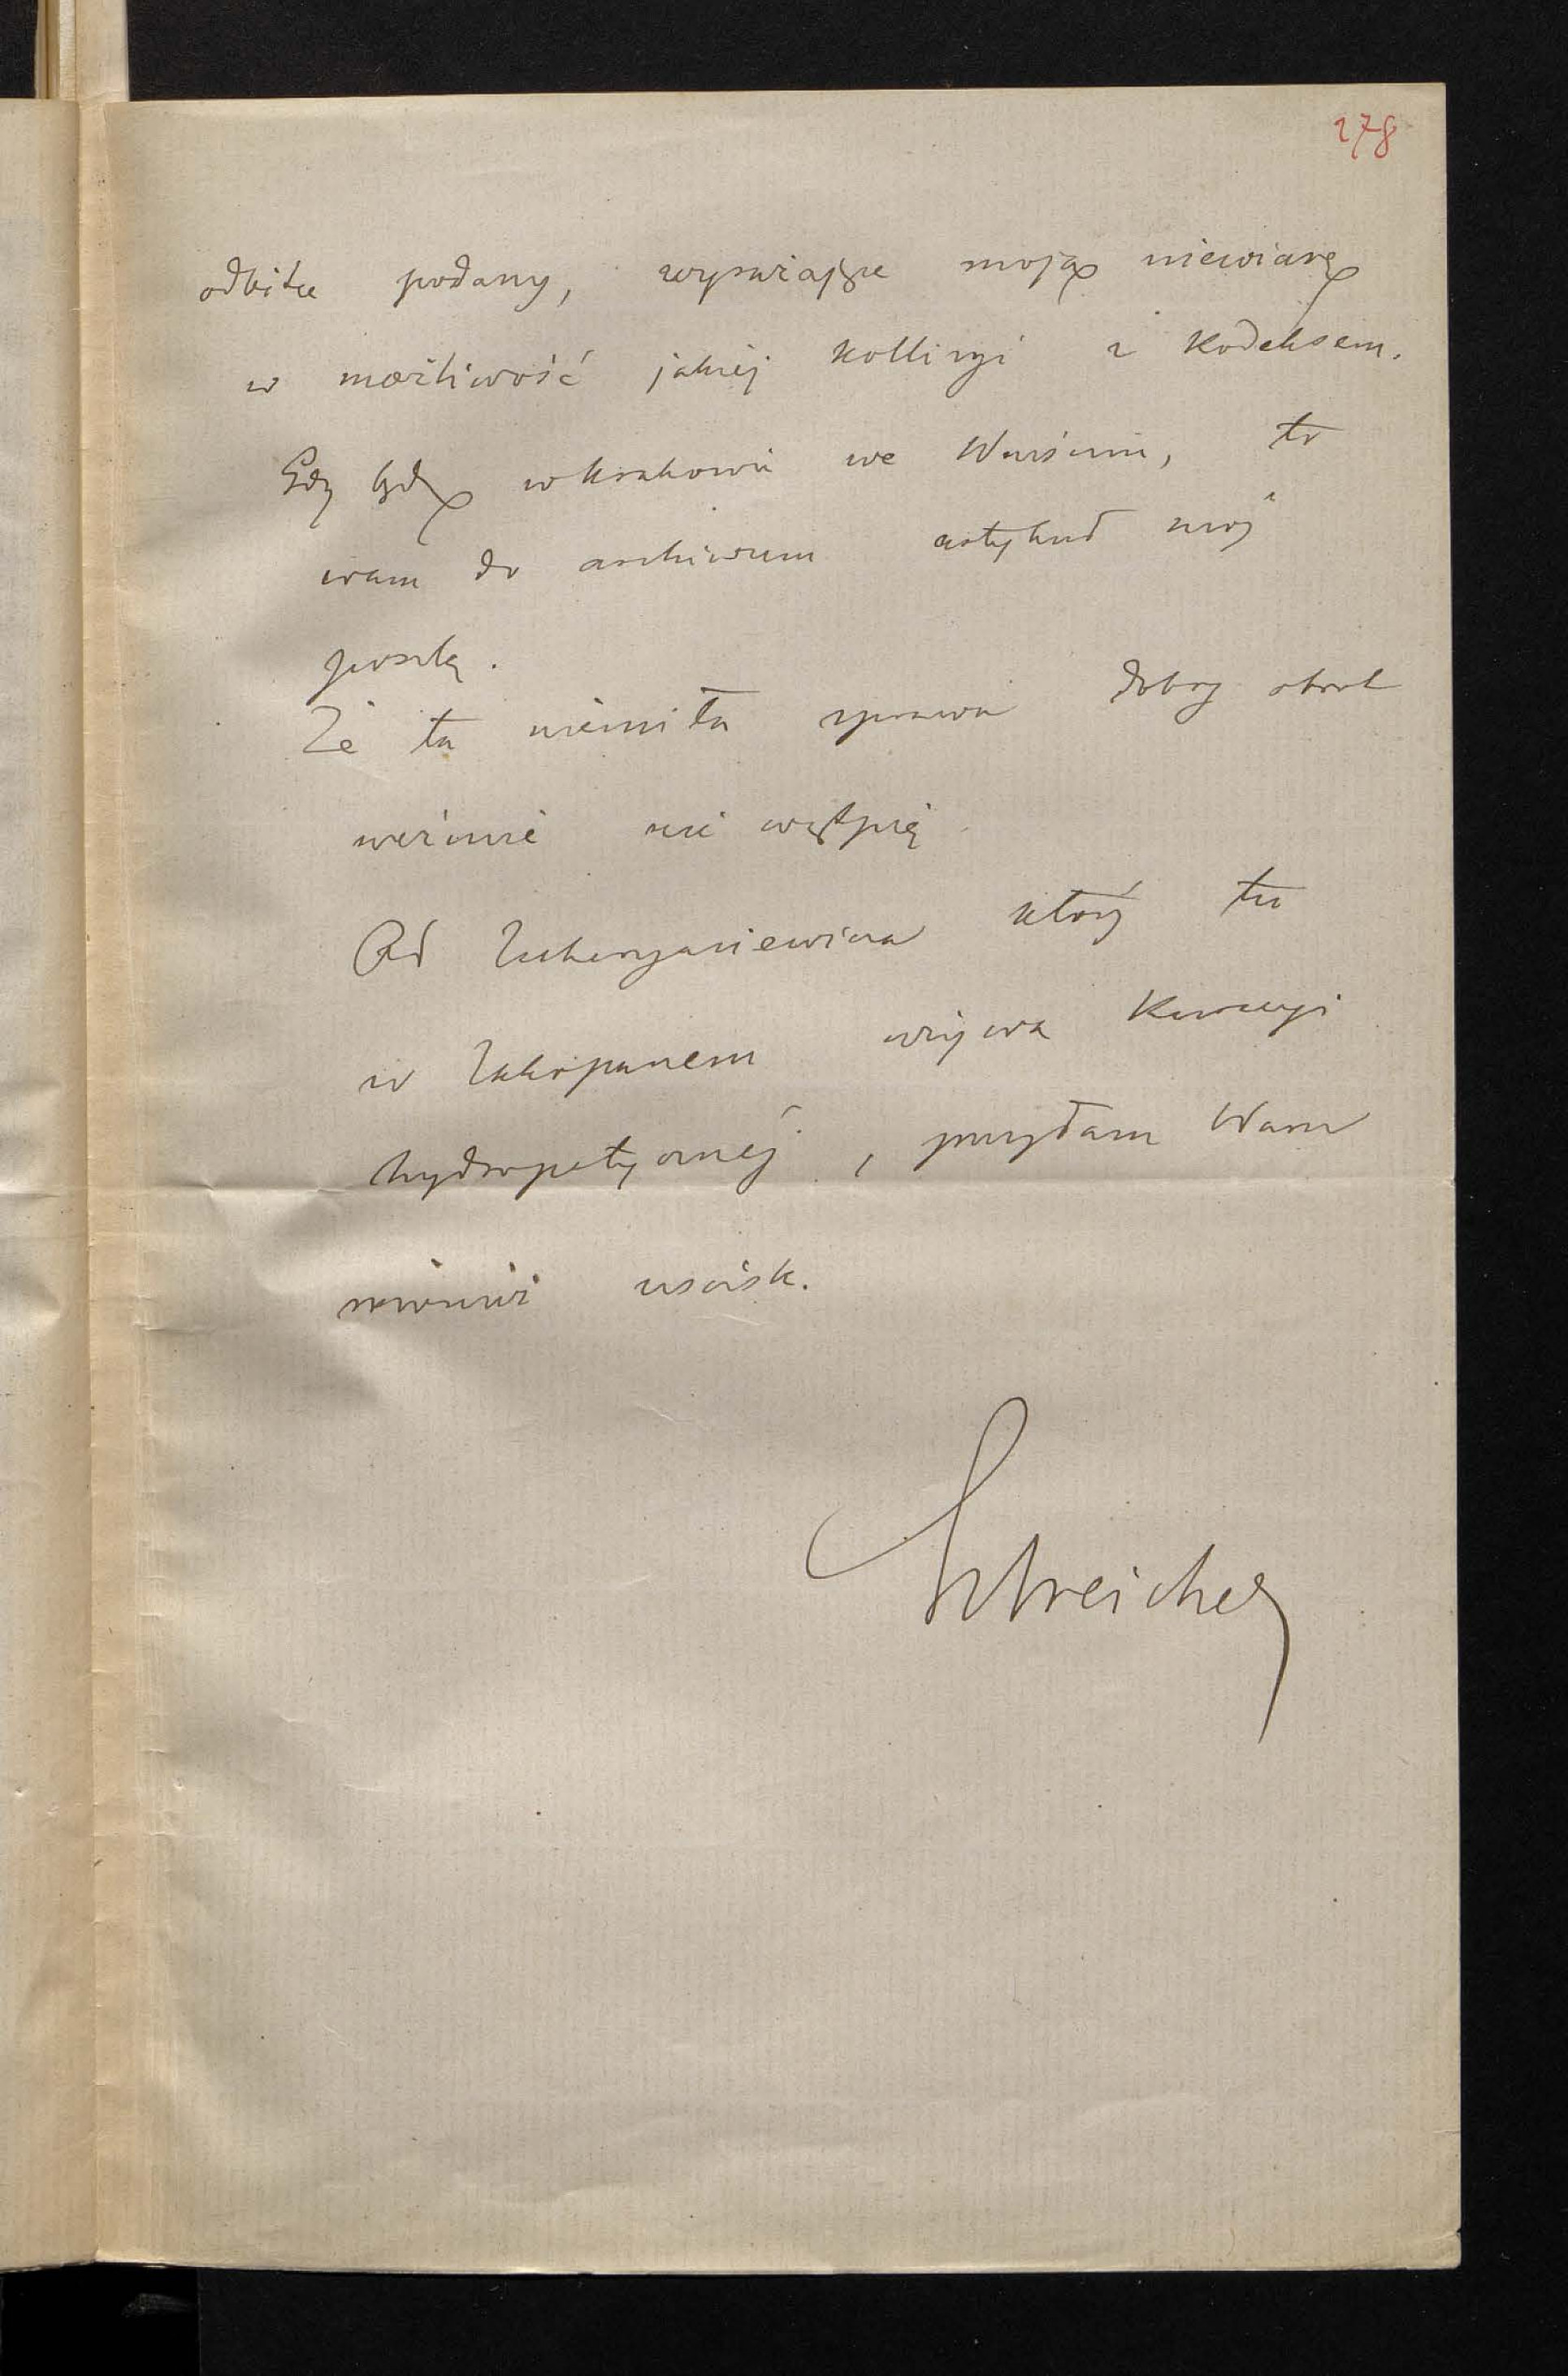 278
odbitce podany, wyrażające moją niewiarę
w możliwość jakiéj kollizyi z Kodeksem.
Gdy będę w Krakowie we Wrześniu, to
wam do archiwum artykuł mój
poszlę.
Że ta niemiła sprawa dobry obrot
weźmie nie wątpię
Od Zacharyasiewicza który tu
w Zakopanem używa Kuracyi
hydropatycznéj, przysyłam Wam
uścisk.
Estreicher